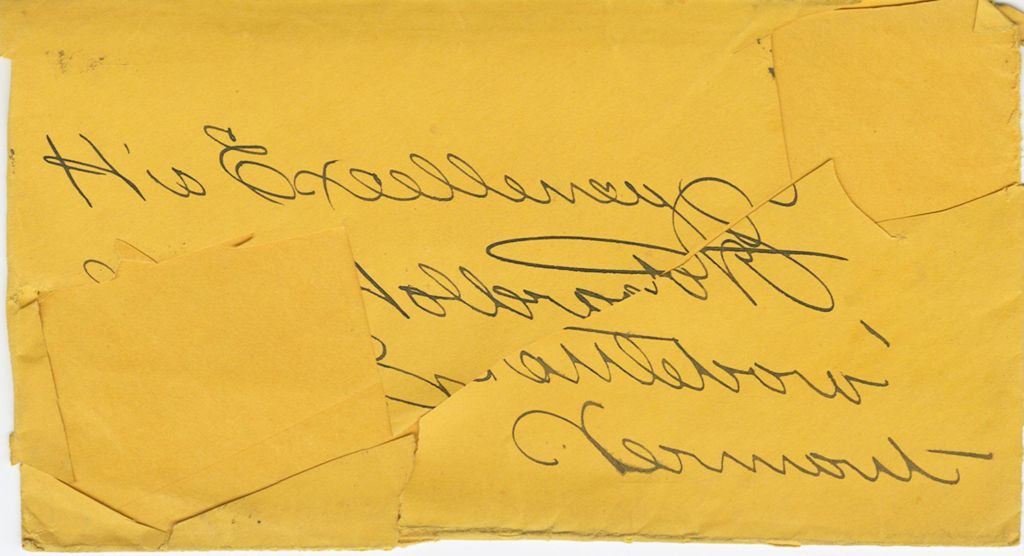 His Excellency
Holbrook
Brattleboro'
Vermont